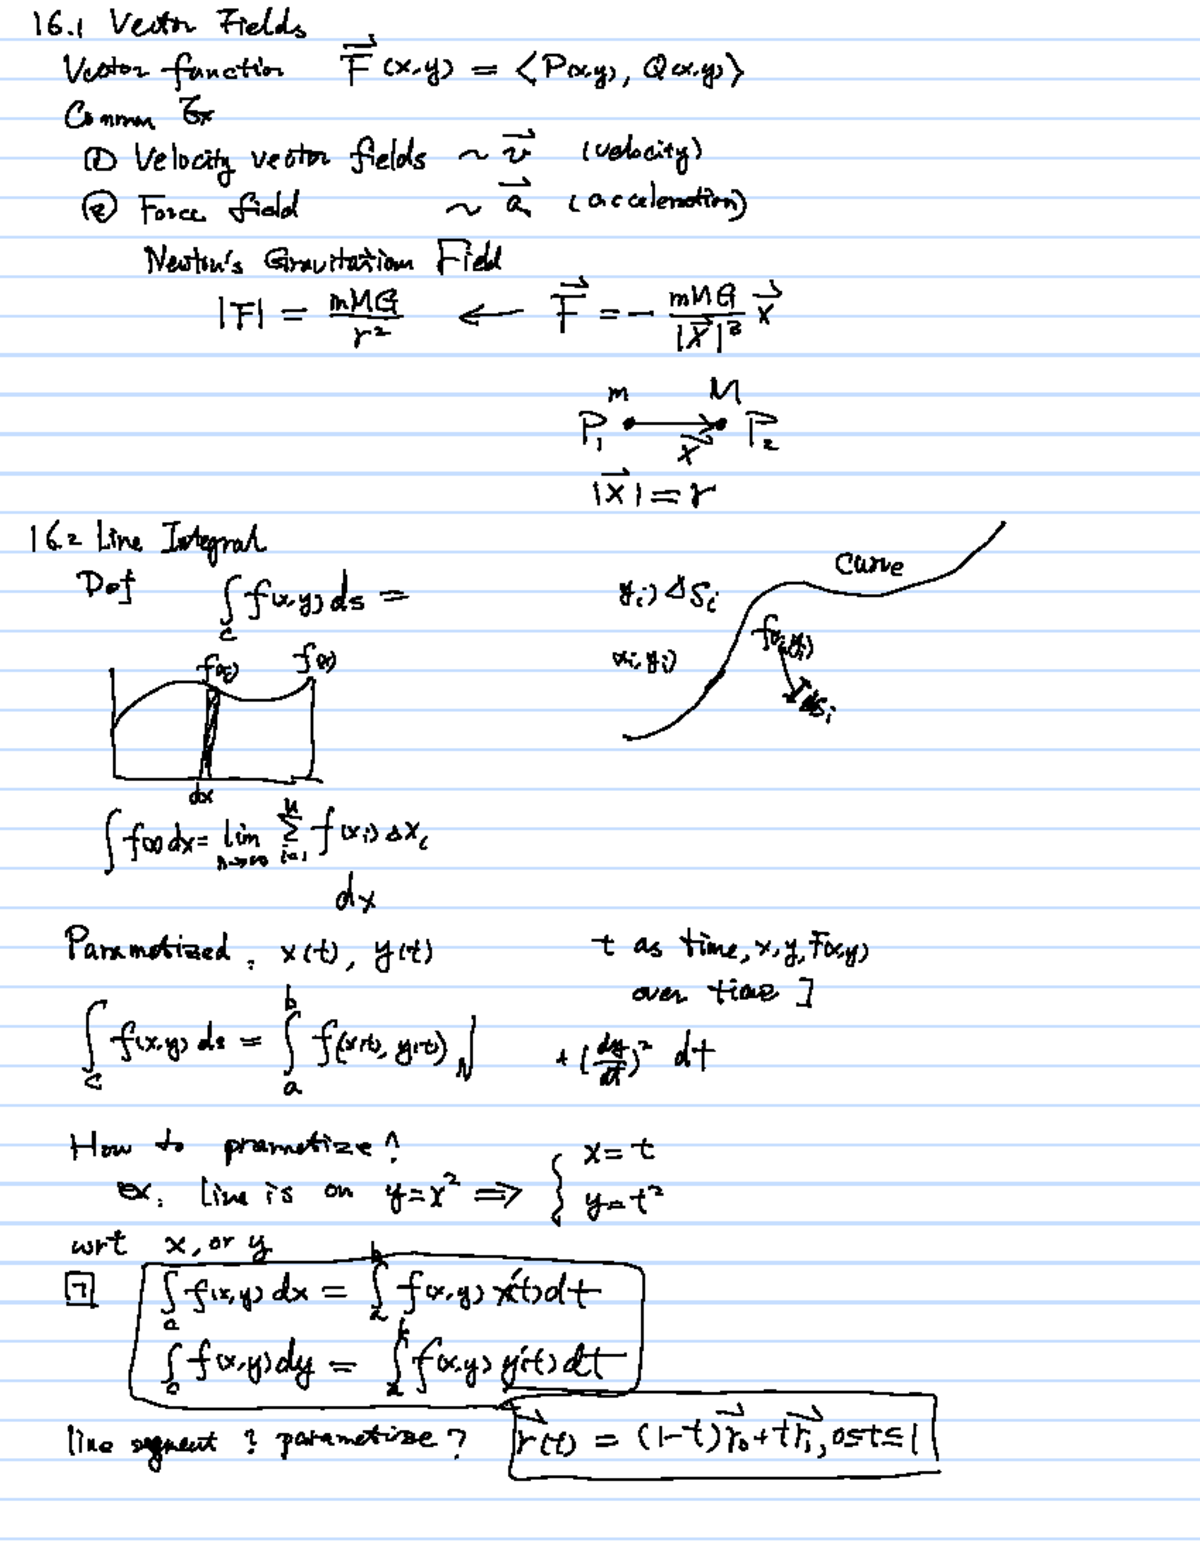 16.1 Vector Fields
Vector function F⃗(x,y) = ⟨P(x,y), Q(x,y)⟩
Common Ex
① Velocity vector fields ~ v⃗ (velocity)
② Force field ~ a⃗ (acceleration)
Newton's Gravitation Field
|F| = mMG/r² ← F⃗ = - mMG/|x⃗|³ x⃗
m M
P₁ x⃗ P₂
|x⃗| = r
16.2 Line Integral
Def ∫_C f(x,y) ds = yᵢ) ΔSᵢ curve
xᵢ, yᵢ)
f(x)
dx
∫ f(x) dx = lim_{n→∞} Σ_{i=1}^{n} f(xᵢ) Δxᵢ
dx
Parametized, x(t), y(t) t as time, x, y, F(x,y)
over time ]
∫_C f(x,y) ds = ∫_a^b f(x(t), y(t)) √ + (dy/dt)² dt
How to prametize?
ex. Line is on y=x² ⇒ { x=t
y=t²
wrt x, or y
7 ∫_C f(x,y) dx = ∫_a^b f(x,y) x'(t) dt
∫_C f(x,y) dy = ∫_a^b f(x,y) y'(t) dt
line segment ? parametize? r⃗(t) = (1-t)r⃗₀ + t r⃗₁, 0≤t≤1